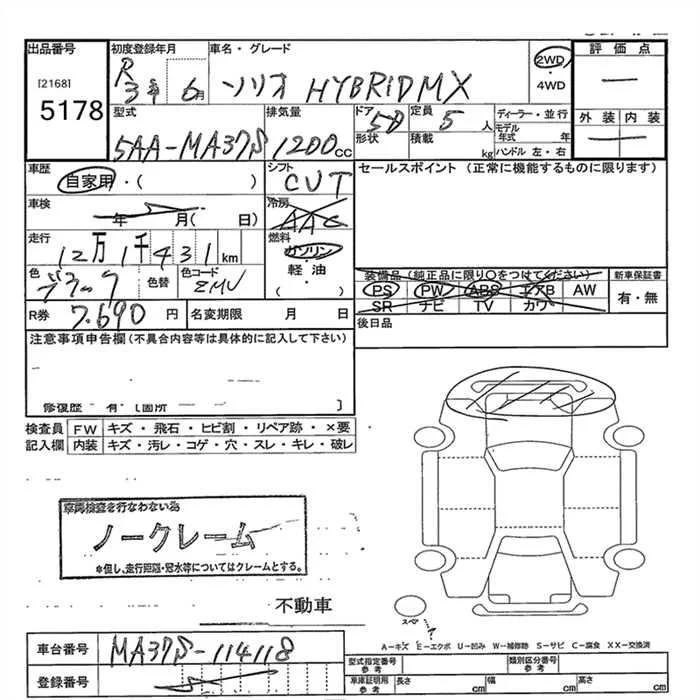 出品番号 初度登録年月 車名・グレード 2WD 評価点
[2168] R 3年 6月 ソリオ HYBRID MX ・4WD
5178 型式 排気量 ドア 定員 ディーラー・並行 外装 内装
5AA-MA37S 1200cc 形状 5D 積載 5人 kg モデル年式 年 ハンドル 左・右
車歴 シフト セールスポイント (正常に機能するものに限ります)
自家用・( ) CVT
車検 冷房
年 月( 日) AAC
走行 燃料
12万1千431km ガソリン
色 色替 色コード 軽・油
ブラック ZMV ( ・ )
装備品(純正品に限り○をつけてください) 新車保証書
PS PW ABS エアB AW 有・無
SR ナビ TV カワ
R券 7.690円 名変期限 月 日 後日品
注意事項申告欄(不具合内容等は具体的に記入して下さい)
修復歴・有・[箇所 ]
検査員 FW キズ・飛石・ヒビ割・リペア跡・×要
記入欄 内装 キズ・汚レ・コゲ・穴・スレ・キレ・破レ
車両検査を行なわない為
ノークレーム
※但し、走行距離・冠水等についてはクレームとする。
不動車
スペア ?
A-キズ E-エクボ U-凹み W-補修跡 S-サビ C-腐食 XX-交換済
車台番号 MA37S-114118
登録番号
型式指定番号 参考 類別区分番号 参考
車庫証明用 参考 長さ cm 幅 cm 高さ cm